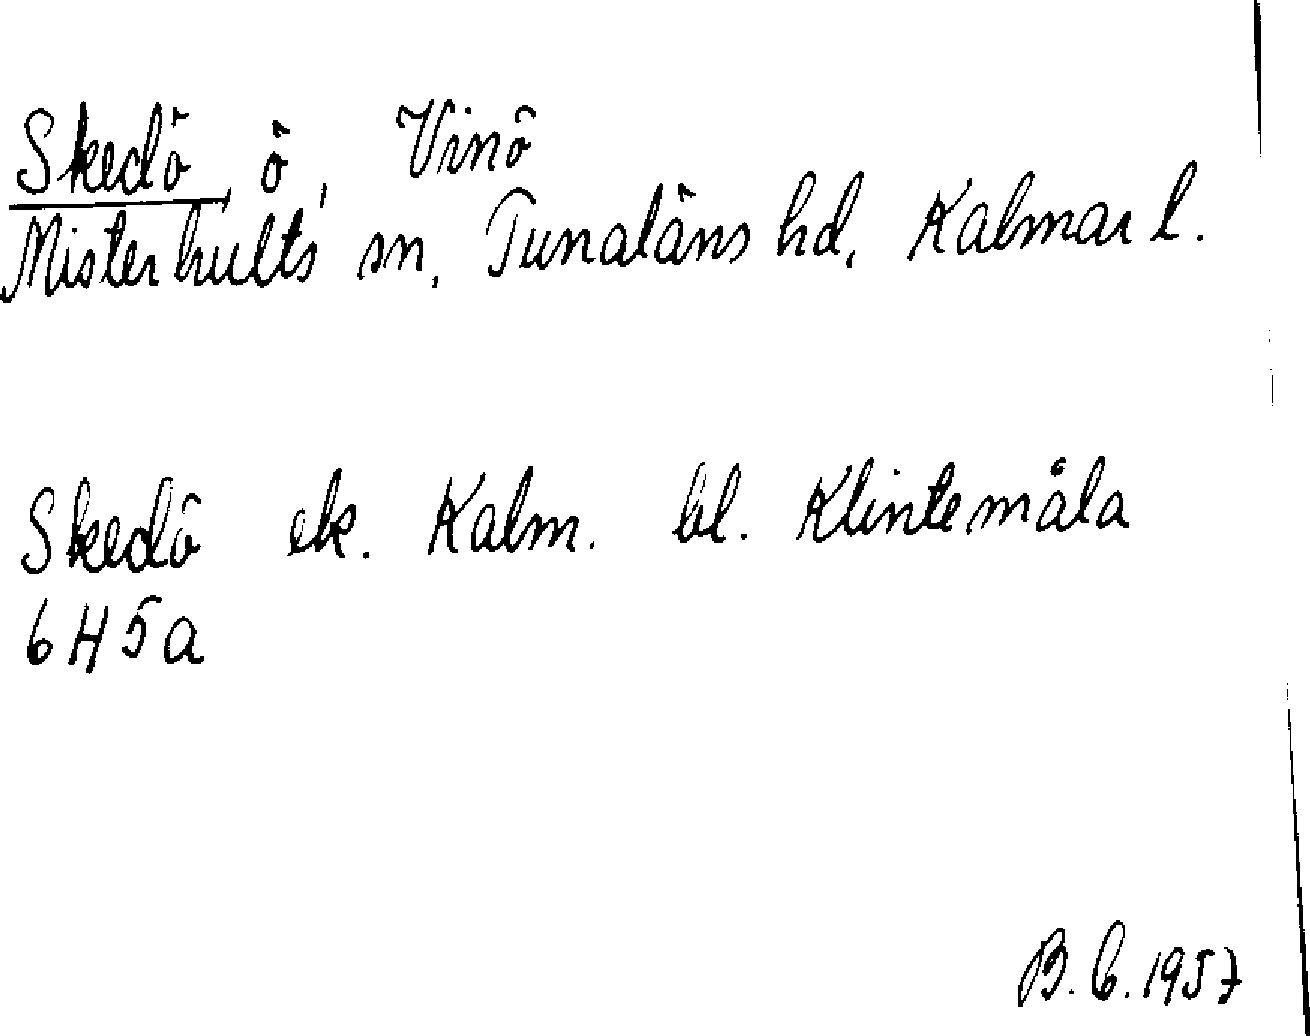 Skedö, ö, Vinö
Misterhults sn, Tunaläns hd, Kalmar l.
Skedö ek. Kalm. bl. Klintemåla
6H5a
B.G.1957